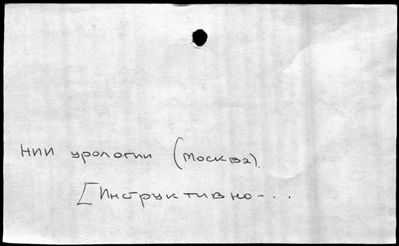 НИИ урологии (Москва).
[Инструктивно-...